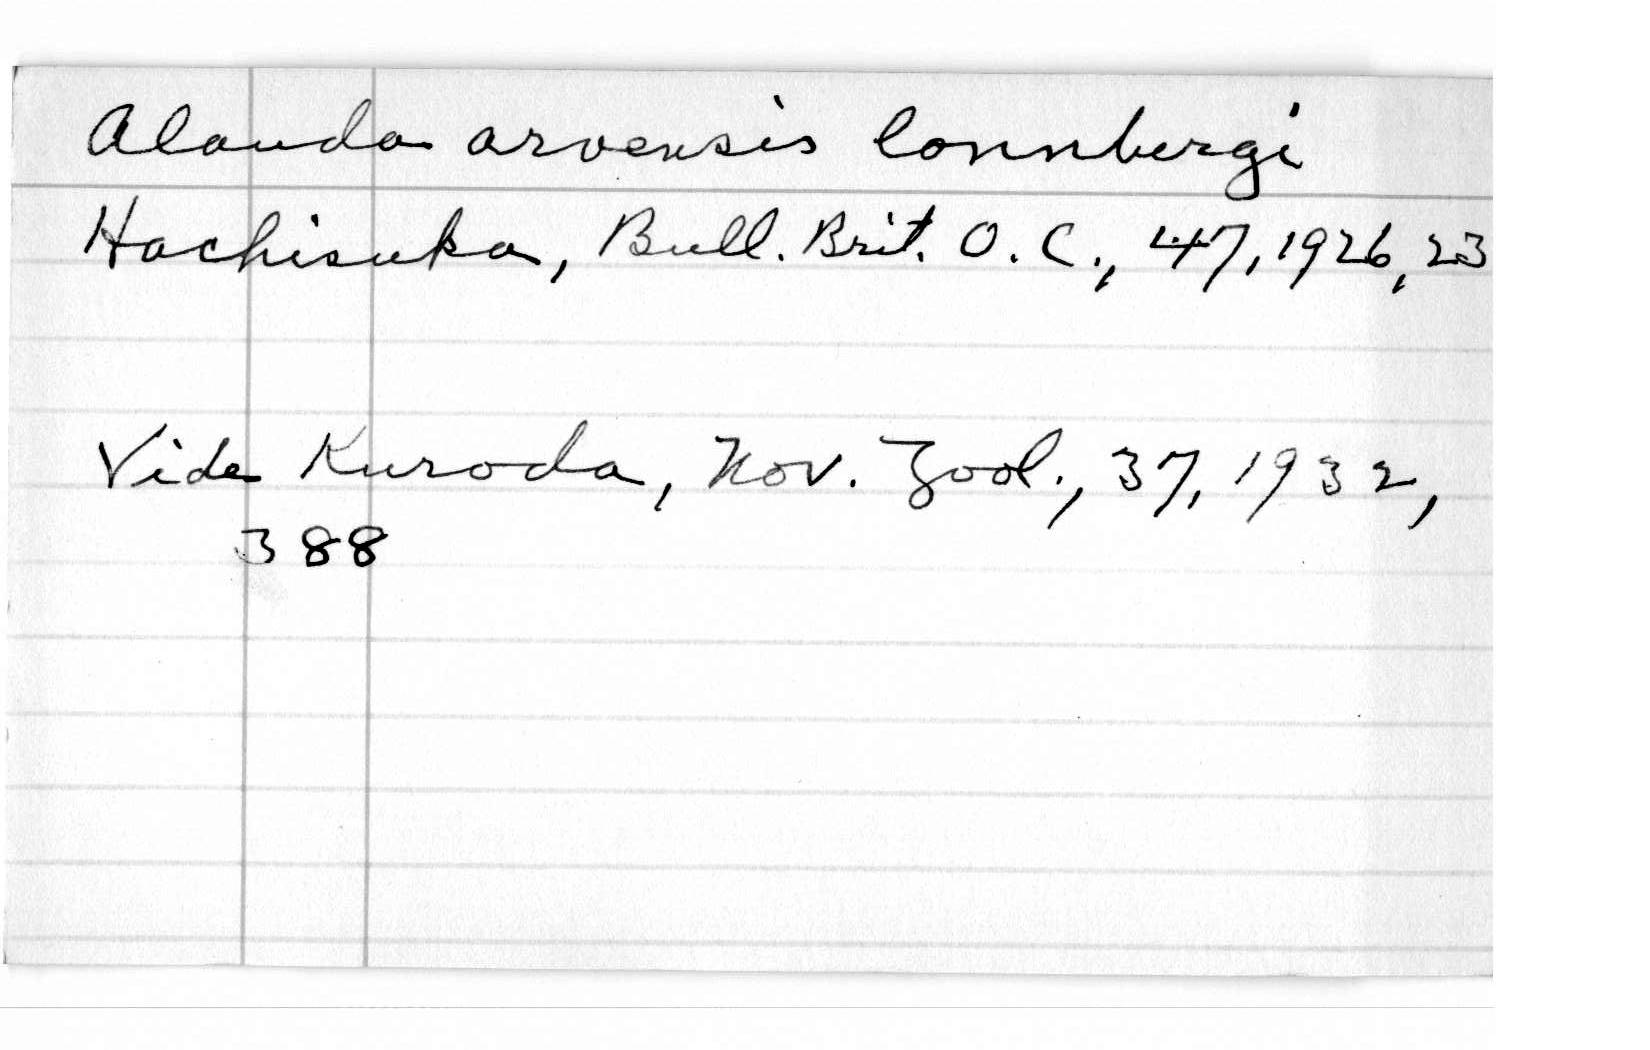 Alauda arvensis lonnbergi
Hachisuka, Bull. Brit. O. C., 47, 1926, 23
Vide Kuroda, Nov. Zool., 37, 1932,
388